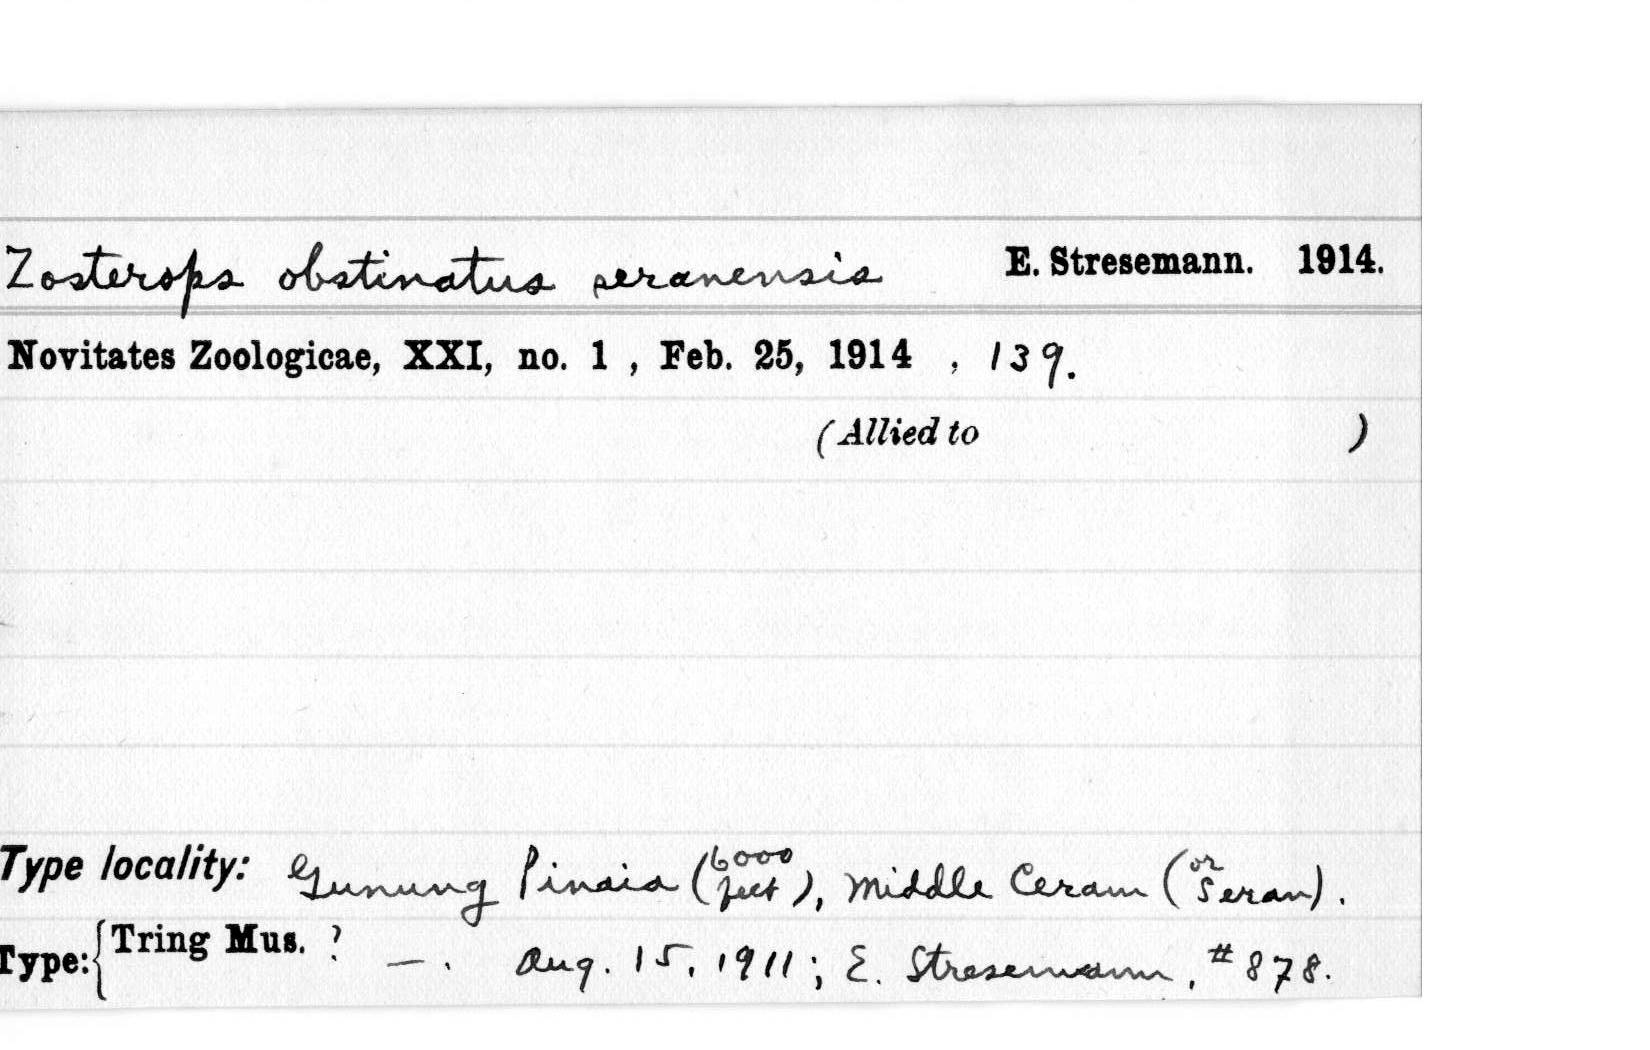 Zosterops obstinatus seranensis E. Stresemann. 1914.
Novitates Zoologicae, XXI, no. 1 , Feb. 25, 1914 , 139.
(Allied to )
Type locality: Gunung Pinaia (6000 feet), Middle Ceram (or Seran).
Type: { Tring Mus. ? — . Aug. 15, 1911; E. Stresemann, #878.